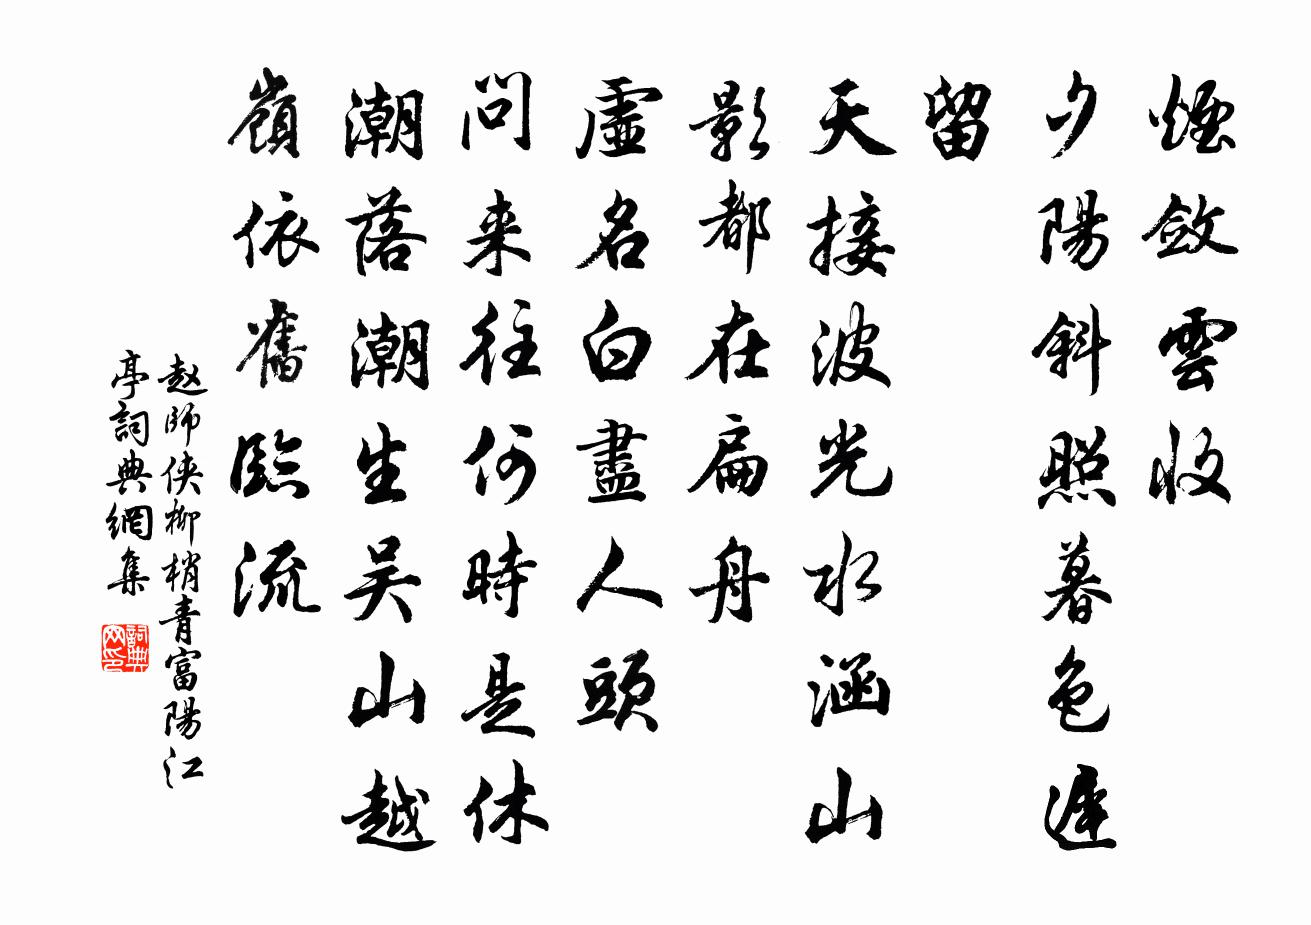 煙斂雲收
夕陽斜照暮色遲
留
天接波光水涵山
影都在扁舟
虛名白盡人頭
問来往何時是休
潮落潮生吴山越
嶺依舊臨流
赵師侠柳梢青富陽江
亭詞典網集
詞典
网印